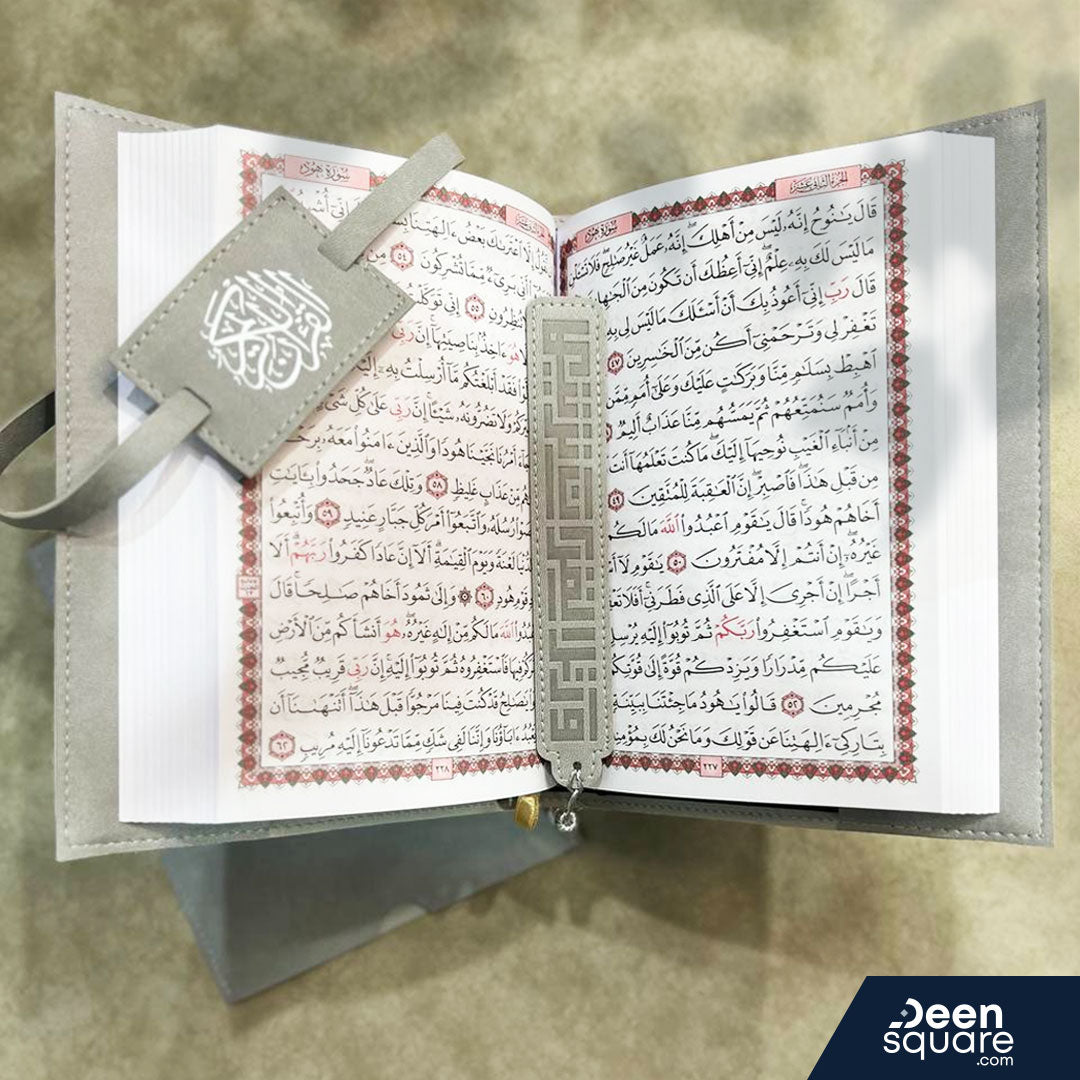 الجزء الثاني عشر
سورة هود
قَالَ يَٰنُوحُ إِنَّهُۥ لَيْسَ مِنْ أَهْلِكَ ۖ إِنَّهُۥ عَمَلٌ غَيْرُ صَٰلِحٍ ۖ فَلَا تَسْـَٔلْنِ
مَا لَيْسَ لَكَ بِهِۦ عِلْمٌ ۖ إِنِّىٓ أَعِظُكَ أَن تَكُونَ مِنَ
قَالَ رَبِّ إِنِّىٓ أَعُوذُ بِكَ أَنْ أَسْـَٔلَكَ مَا لَيْسَ لِى بِهِۦ
تَغْفِرْ لِى وَتَرْحَمْنِىٓ أَكُن مِّنَ ٱلْخَٰسِرِينَ ٤٧
ٱهْبِطْ بِسَلَٰمٍ مِّنَّا وَبَرَكَٰتٍ عَلَيْكَ وَعَلَىٰٓ أُمَمٍ مِّمَّن
وَأُمَمٌ سَنُمَتِّعُهُمْ ثُمَّ يَمَسُّهُم مِّنَّا عَذَابٌ أَلِيمٌ
مِنْ أَنۢبَآءِ ٱلْغَيْبِ نُوحِيهَآ إِلَيْكَ ۖ مَا كُنتَ تَعْلَمُهَآ أَنتَ
مِن قَبْلِ هَٰذَا ۖ فَٱصْبِرْ ۖ إِنَّ ٱلْعَٰقِبَةَ لِلْمُتَّقِينَ ٤٩
أَخَاهُمْ هُودًا ۚ قَالَ يَٰقَوْمِ ٱعْبُدُوا۟ ٱللَّهَ مَا لَكُم
غَيْرُهُۥٓ ۖ إِنْ أَنتُمْ إِلَّا مُفْتَرُونَ ٥٠ يَٰقَوْمِ لَآ
أَجْرًا ۖ إِنْ أَجْرِىَ إِلَّا عَلَى ٱلَّذِى فَطَرَنِىٓ ۚ أَفَلَا
وَيَٰقَوْمِ ٱسْتَغْفِرُوا۟ رَبَّكُمْ ثُمَّ تُوبُوٓا۟ إِلَيْهِ يُرْسِلِ
عَلَيْكُم مِّدْرَارًا وَيَزِدْكُمْ قُوَّةً إِلَىٰ قُوَّتِكُمْ
مُجْرِمِينَ ٥٢ قَالُوا۟ يَٰهُودُ مَا جِئْتَنَا بِبَيِّنَةٍ
بِتَارِكِىٓ ءَالِهَتِنَا عَن قَوْلِكَ وَمَا نَحْنُ لَكَ بِمُؤْمِنِينَ
٢٢٧
سورة هود
نَّقُولُ إِلَّا ٱعْتَرَىٰكَ بَعْضُ ءَالِهَتِنَا
إِنِّىٓ
أَنِّى بَرِىٓءٌ مِّمَّا تُشْرِكُونَ ٥٤ مِن
تُنظِرُونِ ٥٥ إِنِّى تَوَكَّلْتُ
هُوَ ءَاخِذٌۢ بِنَاصِيَتِهَآ ۚ إِنَّ رَبِّى
فَقَدْ أَبْلَغْتُكُم مَّآ أُرْسِلْتُ بِهِۦٓ إِلَيْكُمْ
وَلَا تَضُرُّونَهُۥ شَيْـًٔا ۚ إِنَّ رَبِّى عَلَىٰ كُلِّ شَىْءٍ
أَمْرُنَا نَجَّيْنَا هُودًا وَٱلَّذِينَ ءَامَنُوا۟ مَعَهُۥ
مِّنْ عَذَابٍ غَلِيظٍ ٥٨ وَتِلْكَ عَادٌ ۖ جَحَدُوا۟ بِـَٔايَٰتِ
رُسُلَهُۥ وَٱتَّبَعُوٓا۟ أَمْرَ كُلِّ جَبَّارٍ عَنِيدٍ ٥٩ وَأُتْبِعُوا۟
ٱلدُّنْيَا لَعْنَةً وَيَوْمَ ٱلْقِيَٰمَةِ ۗ أَلَآ إِنَّ عَادًا كَفَرُوا۟ رَبَّهُمْ ۗ أَلَا
قَوْمِ هُودٍ ٦٠ وَإِلَىٰ ثَمُودَ أَخَاهُمْ صَٰلِحًا ۚ قَالَ
ٱللَّهَ مَا لَكُم مِّنْ إِلَٰهٍ غَيْرُهُۥ ۖ هُوَ أَنشَأَكُم مِّنَ ٱلْأَرْضِ
فِيهَا فَٱسْتَغْفِرُوهُ ثُمَّ تُوبُوٓا۟ إِلَيْهِ ۚ إِنَّ رَبِّى قَرِيبٌ مُّجِيبٌ
يَٰصَٰلِحُ قَدْ كُنتَ فِينَا مَرْجُوًّا قَبْلَ هَٰذَآ ۖ أَتَنْهَىٰنَآ أَن
ءَابَآؤُنَا وَإِنَّنَا لَفِى شَكٍّ مِّمَّا تَدْعُونَآ إِلَيْهِ مُرِيبٍ ٦٢
٢٢٨
القرآن الكريم
Deen
square
.com